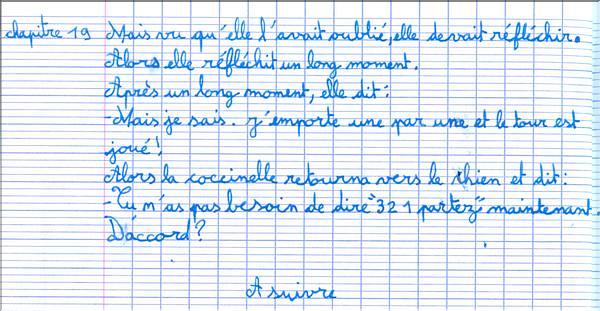 chapitre 19 Mais vu qu'elle l'avait oublié, elle devait réfléchir.
Alors elle réfléchit un long moment.
Après un long moment, elle dit :
-Mais je sais. j'emporte une par une et le tour est
joué !
Alors la coccinelle retourna vers le chien et dit :
-Tu m'as pas besoin de dire "3 2 1 partez" maintenant.
D'accord ?
A suivre